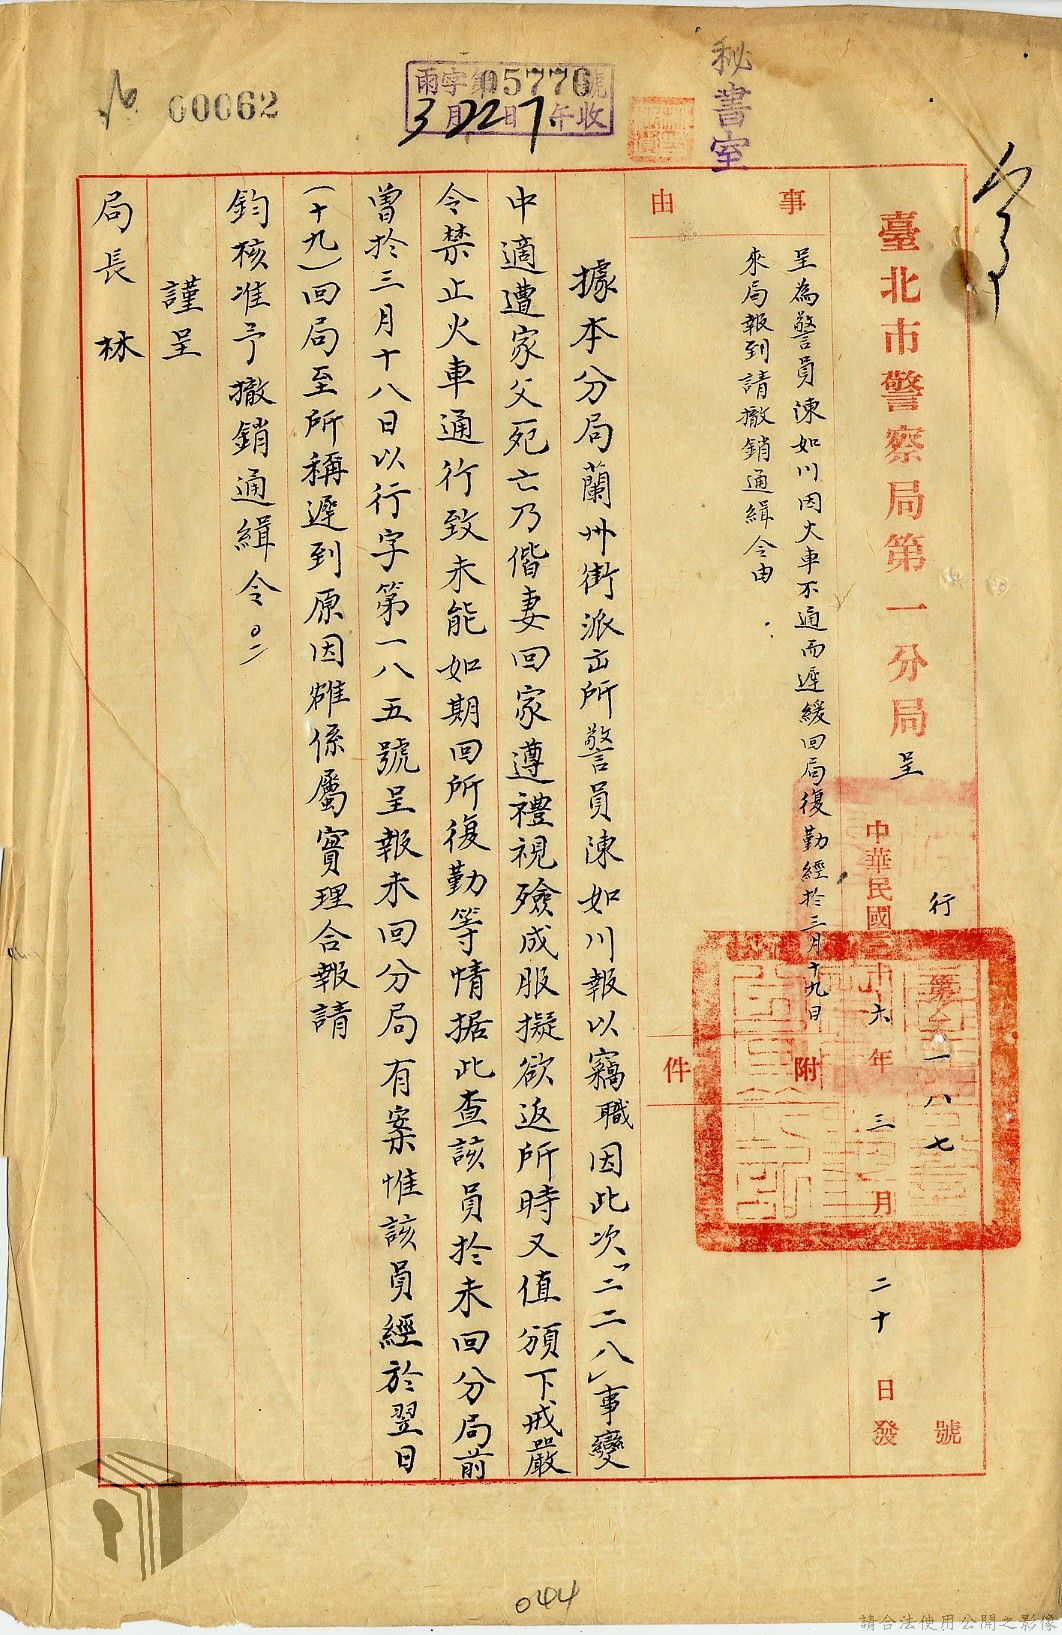 秘書室
雨字第05776號
3月22日 午收
00062
臺北市警察局第一分局呈
行第一八七號
中華民國三十六年三月二十日發
事由
呈為警員陳如川因火車不通而遲緩回局復勤經於三月十九日
來局報到請撤銷通緝令由
附件
據本分局蘭州街派出所警員陳如川報以竊職因此次「二二八」事變
中適遭家父死亡乃偕妻回家遵禮視殮成服擬欲返所時又值頒下戒嚴
令禁止火車通行致未能如期回所復勤等情据此查該員於未回分局前
曾於三月十八日以行字第一八五號呈報未回分局有案惟該員經於翌日
(十九)回局至所稱遲到原因雖係屬實理合報請
鈞核准予撤銷通緝令。
謹呈
局長林
044
請合法使用公開之影像